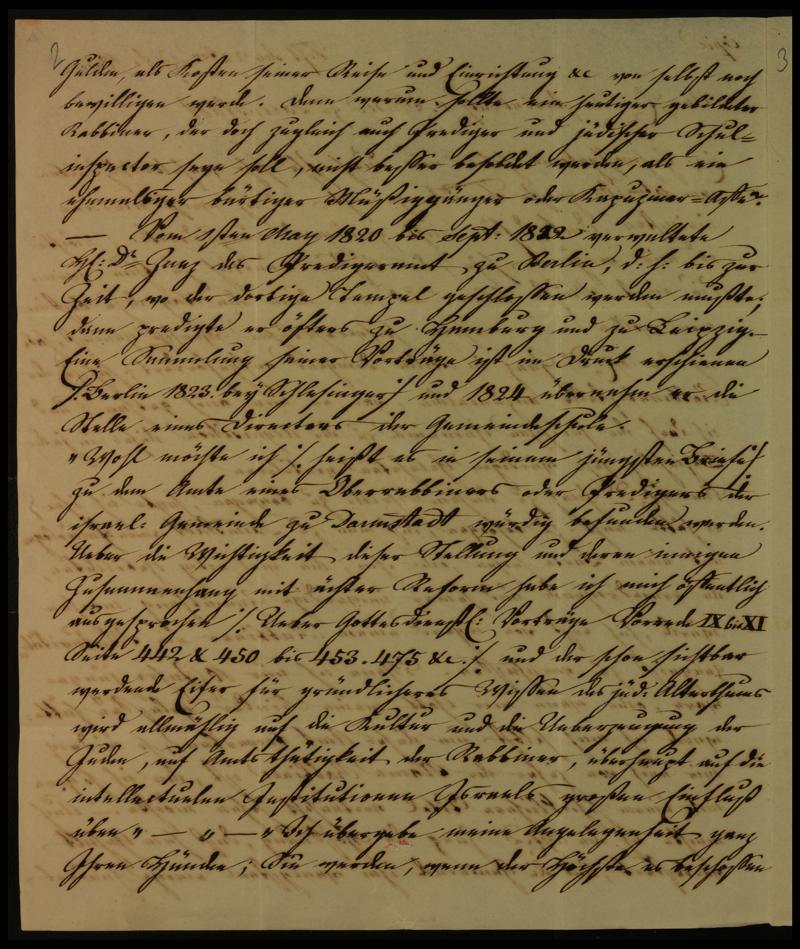 2
3
Gulden, als Kosten seiner Reise und Einrichtung &c von selbst noch
bewilligen werde. Denn warum sollte ein heutiger gebildeter
Rabbiner, der doch zugleich auch Prediger und jüdischer Schul=
inspector seyn soll, nicht besser besoldet werden, als ein
ehemaliger bärtiger Müßiggänger oder Kapuziner=Affe.
— Vom 1sten May 1820 bis Sept: 1822 verwaltete
H: Dr Zunz das Predigeramt zu Berlin, d: h: bis zur
Zeit, wo der dortige Tempel geschlossen werden mußte;
dann predigte er öfters zu Hamburg und zu Leipzig.
Eine Sammlung seiner Vorträge ist im Druck erschienen
/: Berlin 1823. bey Schlesinger :/ und 1824 übernahm er die
Stelle eines Directors der Gemeindeschule.
"Wohl möchte ich /: heißt es in seinem jüngsten Briefe :/
zu dem Amte eines Oberrabbiners oder Predigers der
israel: Gemeinde zu Darmstadt würdig befunden werden.
Ueber die Wichtigkeit dieser Stellung und deren innigen
Zusammenhang mit ächter Reform habe ich mich öffentlich
ausgesprochen /: Ueber Gottesdienstl: Vorträge Vorrede IX bis XI
Seite 442 & 450 bis 453. 475 &c :/ und der schon sichtbar
werdende Eifer für gründlicheres Wissen des jüd: Alterthums
wird allmählig auf die Kultur und die Ueberzeugung der
Juden, auf Amtsthätigkeit der Rabbiner, überhaupt auf die
intellectuelen Institutionen Israels großen Einfluß
üben " — " — " Ich übergebe meine Angelegenheit ganz
Ihren Händen; Sie werden, wenn der Höchste es beschlossen